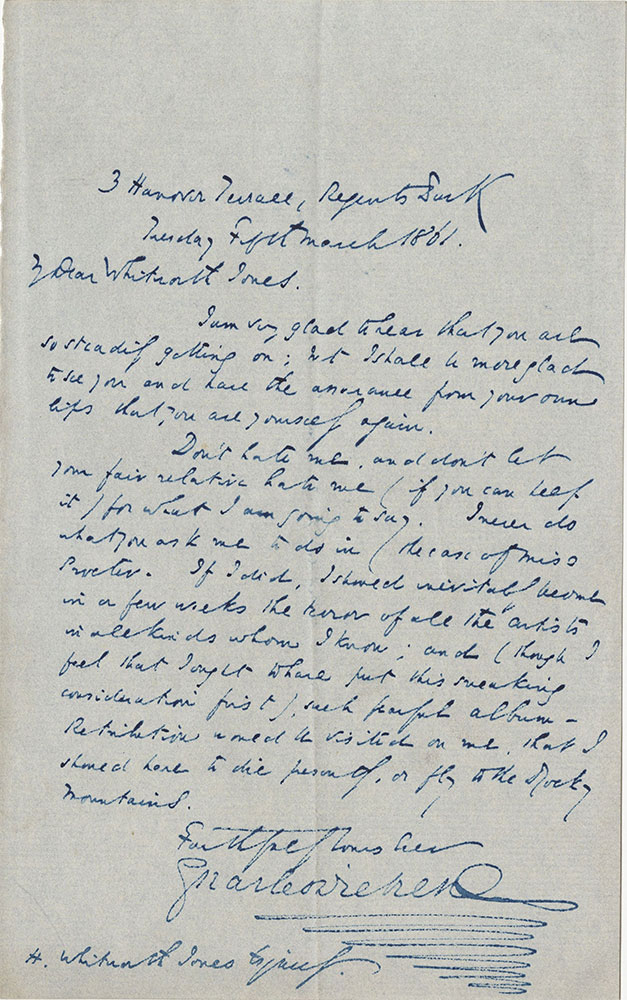 3 Hanover Terrace, Regents Park
Tuesday Fifth March 1861.
My Dear Whitworth Jones.
I am very glad to hear that you are
so steadily getting on; but I shall be more glad
to see you and have the assurance from your own
lips that you are yourself again.
Don't hate me, and don't let
your fair relative hate me (if you can help
it) for what I am going to say. I never do
what you ask me to do in (the case of Miss
Procter. If I did, I should inevitably become
in a few weeks the terror of all the artists
in all kinds whom I know; and (though I
feel that I ought to have put this sneaking
consideration first), such fearful album-
Retribution would be visited on me, that I
should have to die personally, or fly to the Rocky
Mountains.
Faithfully Yours ever
Charles Dickens
H. Whitworth Jones Esquire.